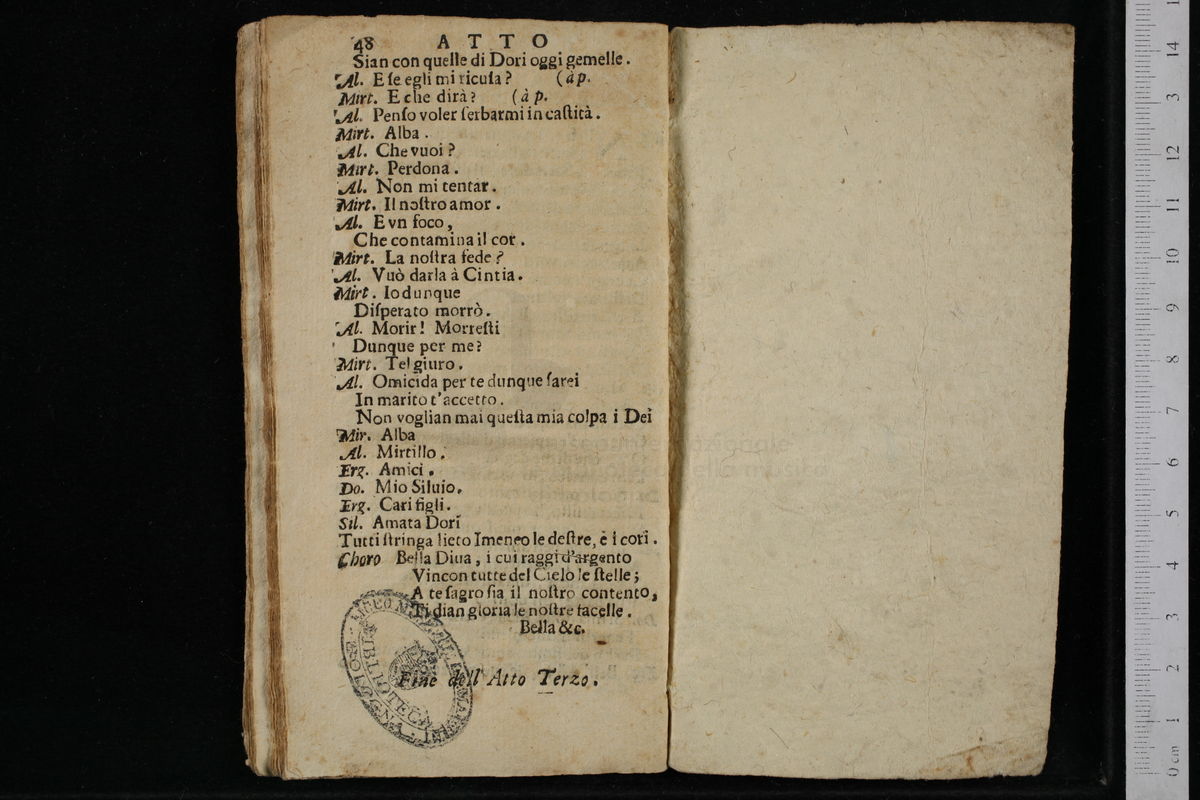 48 ATTO
Sian con quelle di Dori oggi gemelle.
Al. E ſe egli mi ricuſa? (à p.
Mirt. E che dirà? (à p.
Al. Penſo voler ſerbarmi in caſtità.
Mirt. Alba.
Al. Che vuoi?
Mirt. Perdona.
Al. Non mi tentar.
Mirt. Il noſtro amor.
Al. E vn foco,
Che contamina il cor.
Mirt. La noſtra fede?
Al. Vuò darla à Cintia.
Mirt. Io dunque
Diſperato morrò.
Al. Morir! Morreſti
Dunque per me?
Mirt. Tel giuro.
Al. Omicida per te dunque ſarei
In marito t'accetto.
Non voglian mai queſta mia colpa i Dei
Mir. Alba
Al. Mirtillo.
Erg. Amici.
Do. Mio Siluio.
Erg. Cari figli.
Sil. Amata Dori
Tutti ſtringa lieto Imeneo le deſtre, è i cori.
Choro Bella Diua, i cui raggi d'argento
Vincon tutte del Cielo le ſtelle;
A te ſagro ſia il noſtro contento,
Ti dian gloria le noſtre facelle.
Bella &c.
Fine dell'Atto Terzo.
LICEO MUSICALE
BIBLIOTECA
BOLOGNA